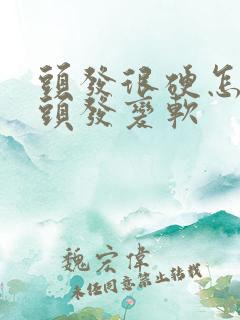 頭發很硬怎
頭發變軟
魏宏偉
未經同意禁止轉載